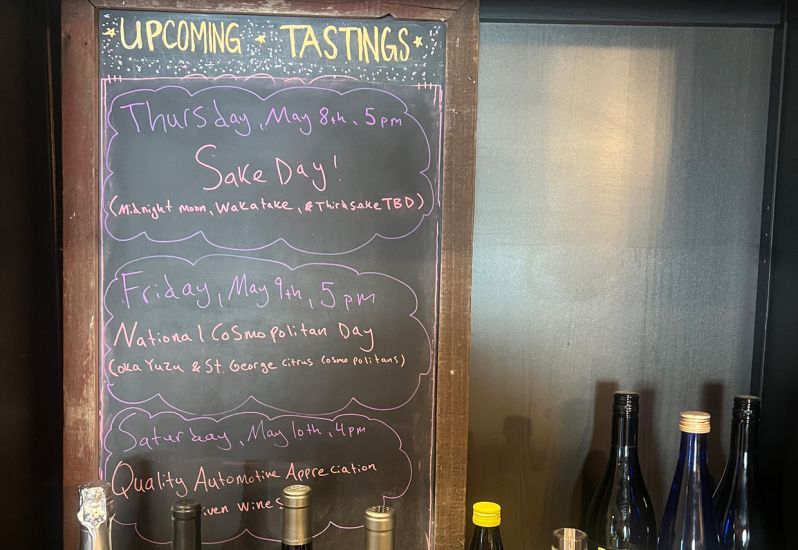 UPCOMING TASTINGS
Thursday, May 8th, 5pm
Sake Day!
(Midnight Moon, Wakatake, & Third Sake TBD)
Friday, May 9th, 5pm
National Cosmopolitan Day
(Oka Yuzu & St. George Citrus Cosmopolitans)
Saturday, May 10th, 4pm
Quality Automotive Appreciation
iven Wines